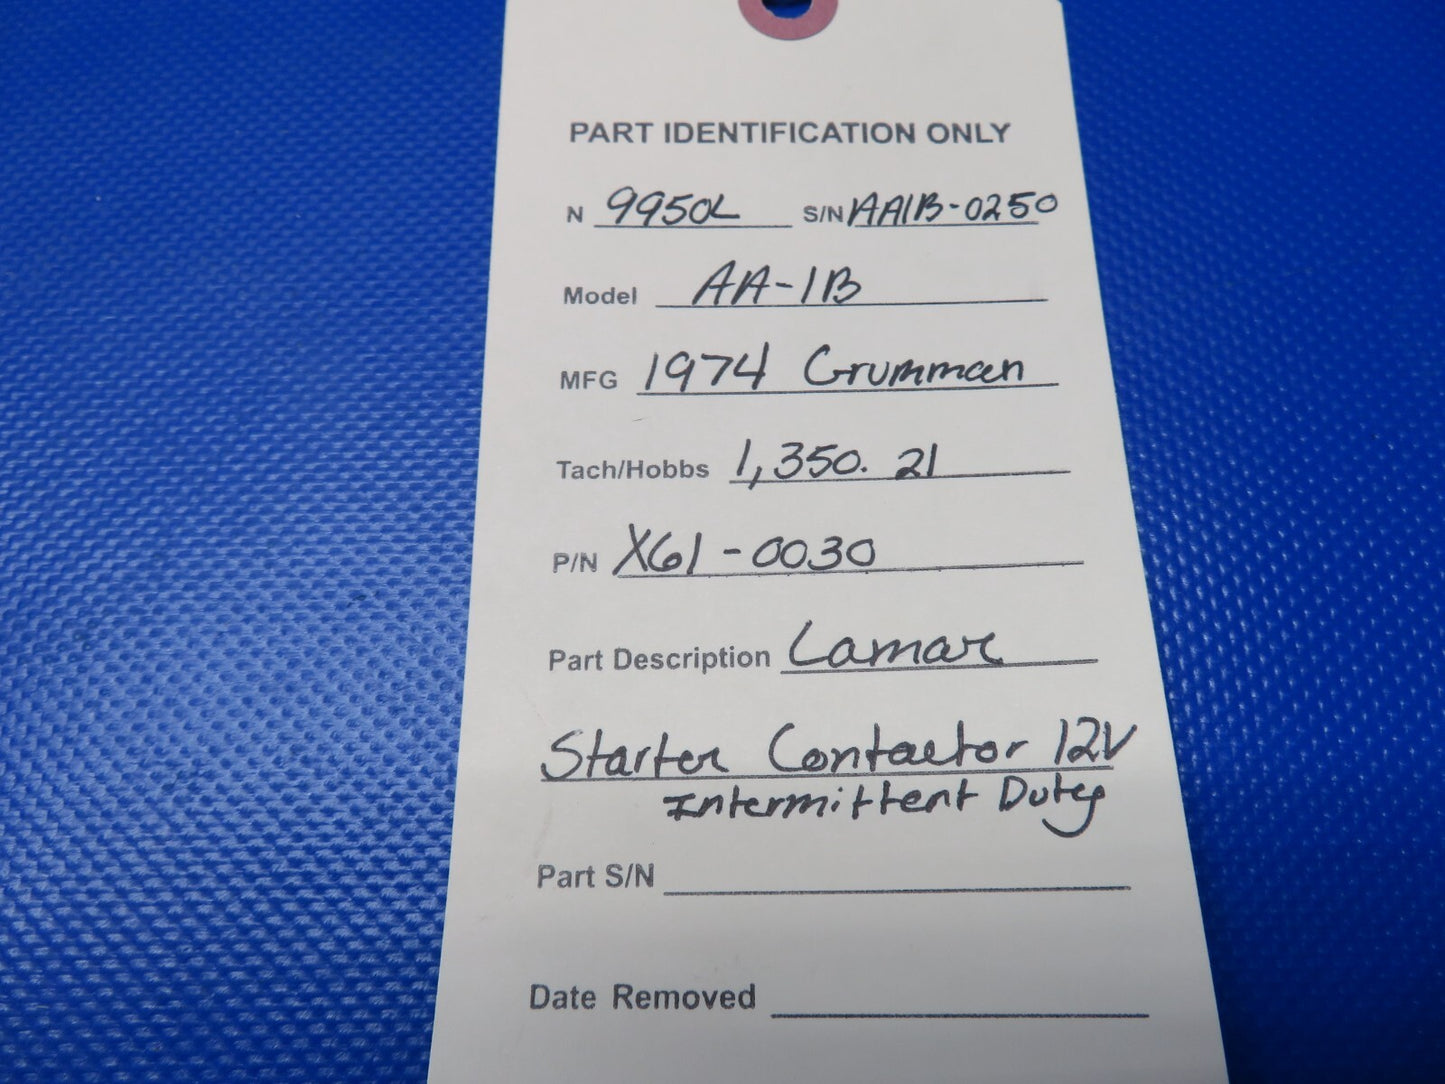 PART IDENTIFICATION ONLY
N 9950L S/N AA1B-0250
Model AA-1B
MFG 1974 Grumman
Tach/Hobbs 1,350.21
P/N X61-0030
Part Description Lamar
Starter Contactor 12V
Intermittent Duty
Part S/N
Date Removed